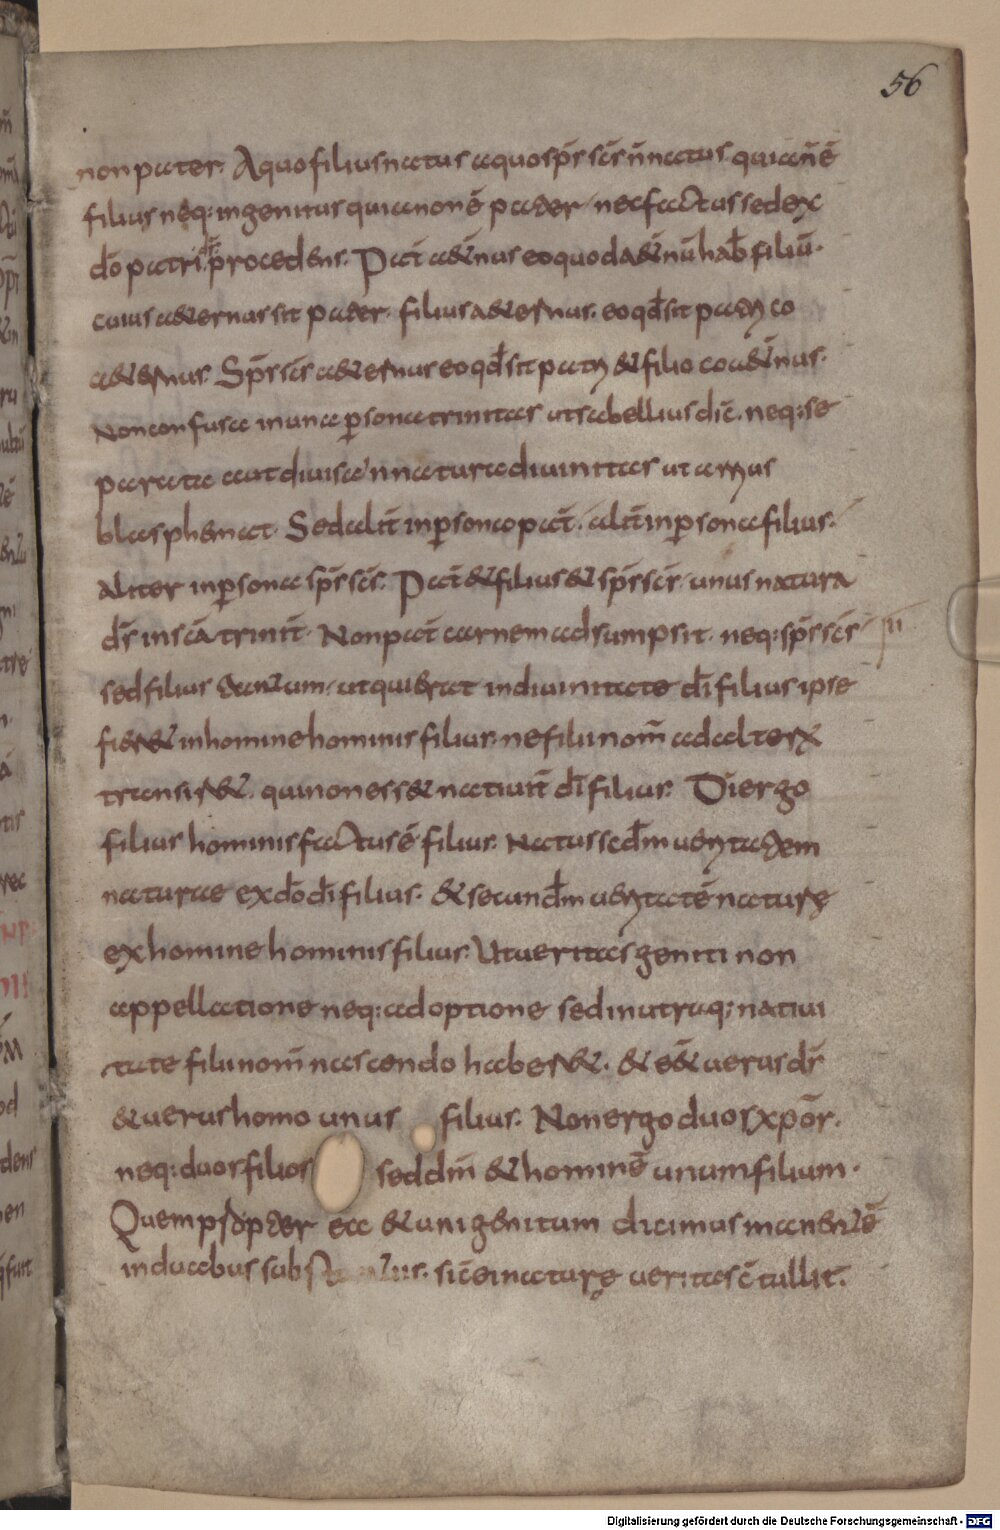 56
non pater. A quo filius natus a quo sp̄s sc̄s n̄ natus quia n̄ ē
filius neq; ingenitus quia non ē pater nec factus sed ex
dō patri procedens. Pat̄ aet̄nus eo quod aet̄nū hab̄ filiū.
cuius aeternus sit pater. filius aeternus. eo qd̄ sit patri co
aeternus. Sp̄s sc̄s aeternus eo qd̄ sit patri & filio coaet̄nus.
Non confusa in una p̄sona trinitas ut sabellius dic̄. neq; se
parata aut diuisa in natura diuinitas ut arrius
blasphemat. Sed alit̄ in p̄sona pat̄. alit̄ in p̄sona filius.
aliter in p̄sona sp̄s sc̄s. Pat̄ & filius & sp̄s sc̄s unus natura
ds̄ in scā trinit̄. Non pat̄ carnem adsumpsit. neq; sp̄s sc̄s
iii
sed filius tantum. ut qui erat in diuinitate dī filius ipse
fier& in homine hominis filius. ne filii nom̄ ad alterū
transir&. qui non ess& natiuit̄ dī filius. Dī ergo
filius hominis factus ē filius. Natus secd̄m ueritatem
naturae ex dō dī filius. & secund̄m ueritatē naturę
ex homine hominis filius. Ut ueritas geniti non
appellatione neq; adoptione sed in utraq; natiui
tate filii nom̄ nascendo haber&. & e& uerus ds̄
& uerus homo unus filius. Non ergo duos xp̄os.
neq; duos filios sed dm̄ & hominē unum filium.
Quem p̄pter ea & unigenitum dicimus manentē
in duabus subst ntiis. sic̄ ei naturę ueritas c̄tullit.
Digitalisierung gefördert durch die Deutsche Forschungsgemeinschaft - DFG